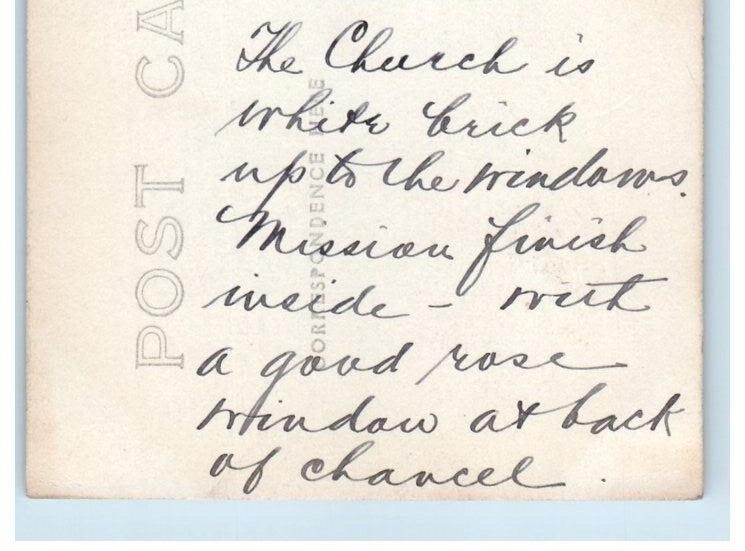 POST CA
CORRESPONDENCE HERE
The Church is
white brick
up to the windows.
Mission finish
inside – with
a good rose
window at back
of chancel.